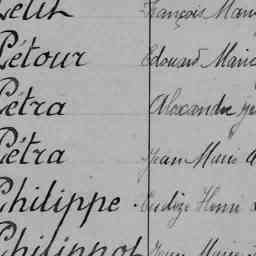 Petit François Marie
Pétour Edouard Marie
Pétra Alexandre
Pétra Jean Marie
Philippe Henri
Philippot Jean Marie